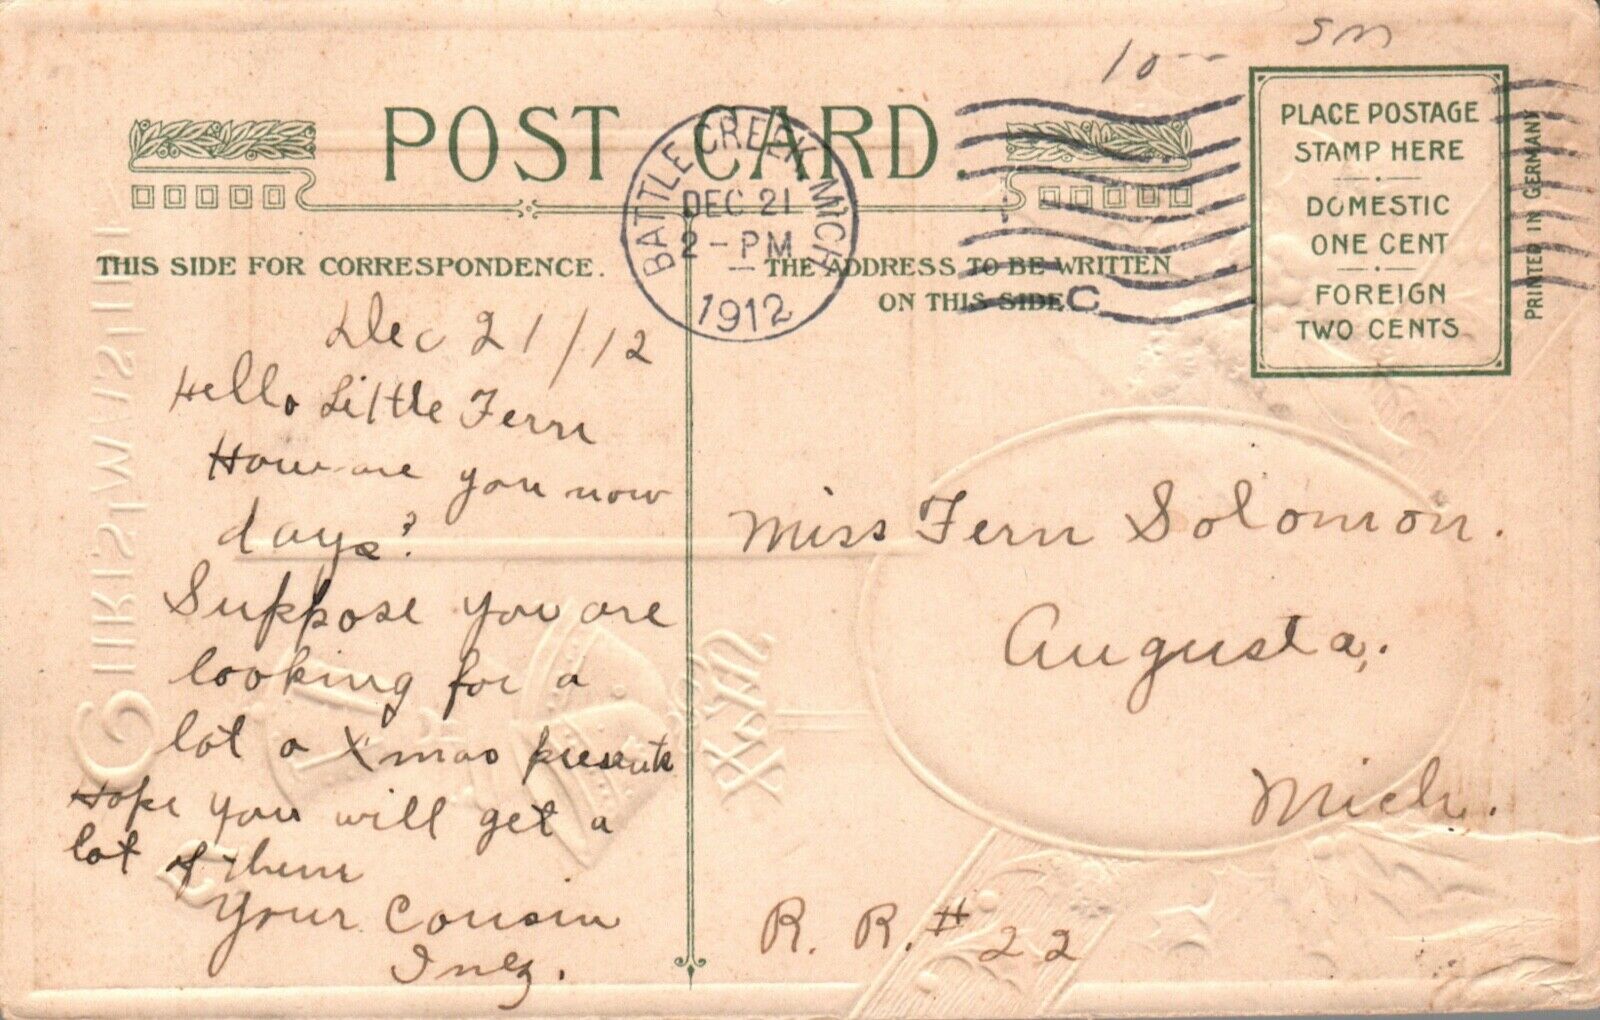 10-- SM
POST CARD.
BATTLE CREEK MICH
DEC 21
2 - PM
1912
C
PLACE POSTAGE
STAMP HERE
DOMESTIC
ONE CENT
FOREIGN
TWO CENTS
PRINTED IN GERMANY
THIS SIDE FOR CORRESPONDENCE.
THE ADDRESS TO BE WRITTEN
ON THIS SIDE
Dec 21/12
Hello Little Fern
How are you now
days?
Suppose you are
looking for a
lot o Xmas presents
Hope you will get a
lot of them
Your Cousin
Inez.
Miss Fern Solomon.
Augusta,.
Mich.
R. R. # 22